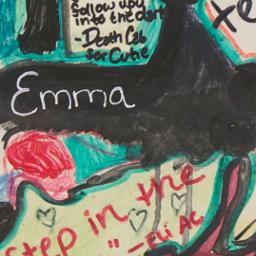 follow you
into the dark
-Death Cab
for Cutie
te
Emma
Step in the
" -Eli AC